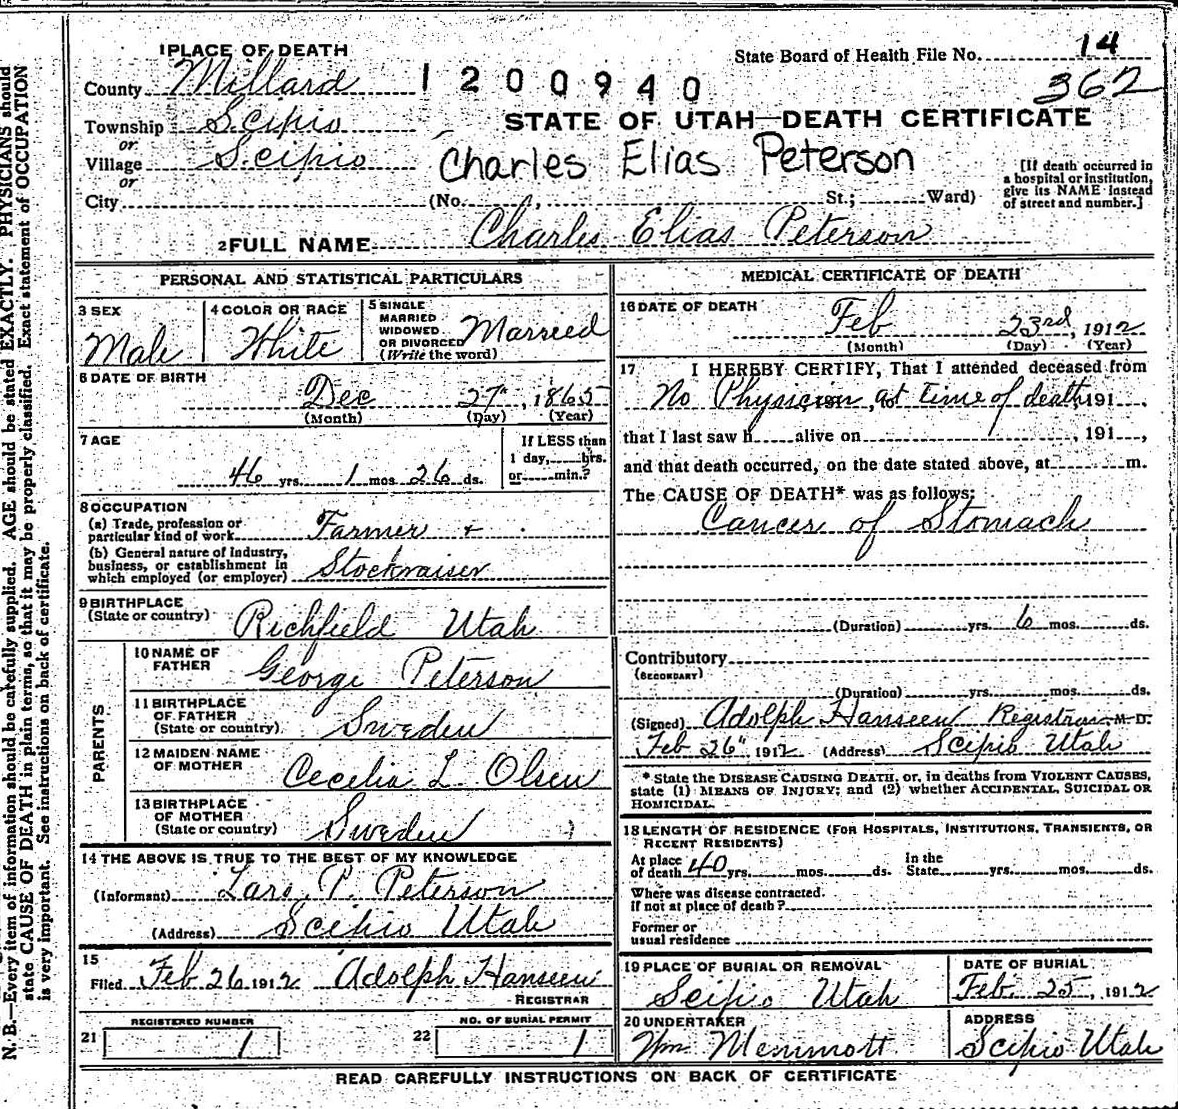 1 PLACE OF DEATH
State Board of Health File No. 14
County Millard
1200940
362
Township Scipio
STATE OF UTAH—DEATH CERTIFICATE
or
Village Scipio
Charles Elias Peterson
[If death occurred in
a hospital or institution,
give its NAME instead
of street and number.]
or
City (No. , St.; Ward)
2 FULL NAME Charles Elias Peterson
PERSONAL AND STATISTICAL PARTICULARS
3 SEX
Male
4 COLOR OR RACE
White
5 SINGLE
MARRIED
WIDOWED
OR DIVORCED
(Write the word)
Married
6 DATE OF BIRTH
Dec 27", 1865
(Month) (Day) (Year)
7 AGE
46 yrs. 1 mos. 26 ds.
If LESS than
1 day, hrs.
or min.?
8 OCCUPATION
(a) Trade, profession or
particular kind of work Farmer +
(b) General nature of Industry,
business, or establishment in
which employed (or employer) Stockraiser
9 BIRTHPLACE
(State or country)
Richfield Utah
PARENTS
10 NAME OF
FATHER
George Peterson
11 BIRTHPLACE
OF FATHER
(State or country)
Sweden
12 MAIDEN NAME
OF MOTHER
Cecelia L Olsen
13 BIRTHPLACE
OF MOTHER
(State or country)
Sweden
14 THE ABOVE IS TRUE TO THE BEST OF MY KNOWLEDGE
(Informant) Lars P. Peterson
(Address) Scipio Utah
15
Filed Feb 26 1912 Adolph Hanseen
REGISTRAR
REGISTERED NUMBER
21 1
NO. OF BURIAL PERMIT
22 1
MEDICAL CERTIFICATE OF DEATH
16 DATE OF DEATH
Feb 23rd, 1912
(Month) (Day) (Year)
17 I HEREBY CERTIFY, That I attended deceased from
No Physician at time of death, 191 ,
that I last saw h alive on , 191 ,
and that death occurred, on the date stated above, at m.
The CAUSE OF DEATH* was as follows:
Cancer of Stomach
(Duration) yrs. 6 mos. ds.
Contributory
(SECONDARY)
(Duration) yrs. mos. ds.
(Signed) Adolph Hanseen Registrar M. D.
Feb 26" 1912 (Address) Scipio Utah
* State the DISEASE CAUSING DEATH, or, in deaths from VIOLENT CAUSES,
state (1) MEANS OF INJURY; and (2) whether ACCIDENTAL, SUICIDAL OR
HOMICIDAL.
18 LENGTH OF RESIDENCE (FOR HOSPITALS, INSTITUTIONS, TRANSIENTS, OR
RECENT RESIDENTS)
At place
of death 40 yrs. mos. ds.
In the
State yrs. mos. ds.
Where was disease contracted.
If not at place of death?
Former or
usual residence
19 PLACE OF BURIAL OR REMOVAL
Scipio Utah
DATE OF BURIAL
Feb. 25, 1912
20 UNDERTAKER
Wm Memmott
ADDRESS
Scipio Utah
READ CAREFULLY INSTRUCTIONS ON BACK OF CERTIFICATE
N. B.—Every item of information should be carefully supplied. AGE should be stated EXACTLY. PHYSICIANS should
state CAUSE OF DEATH in plain terms, so that it may be properly classified. Exact statement of OCCUPATION
is very important. See instructions on back of certificate.